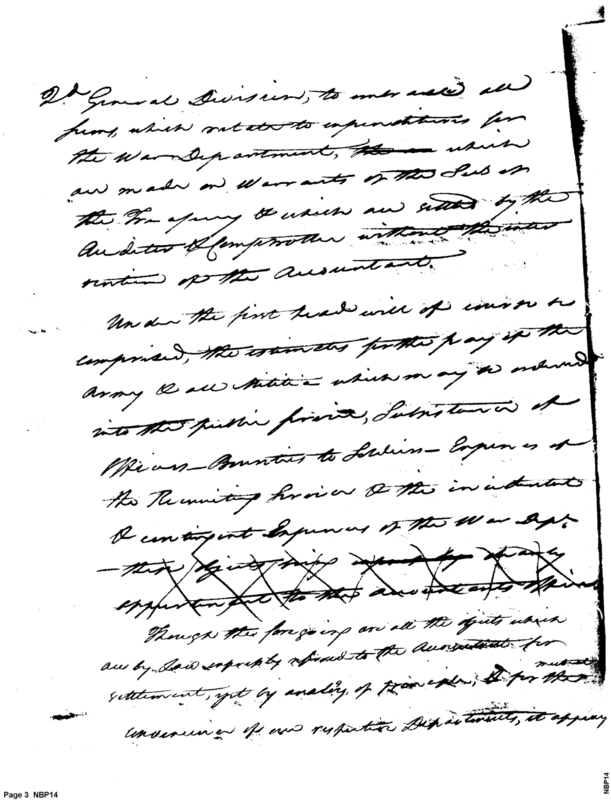 2d General Division, to embrace all
sums, which relate to expenditures for
the War Department, which
are made on Warrants of the Sec'y of
the Treasury & which are settled by the
Auditor & Comptroller without the inter
vention of the Accountant.
Under the first head will of course be
comprised, the estimates for the pay of the
Army & all Militia which may be ordered
into the public service, Subsistence of
Officers – Bounties to Soldiers – Expences of
the Recruiting Service & the incidental
& contingent Expences of the War Dept.
– these objects being
appurtenant to the accountants Office
Though the foregoing are all the objects which
are by Law expressly referred to the Accountant for
settlement, yet by analogy of principle, & for the mutual
convenience of our respective Departments, it appears
Page 3 NBP14
NBP14